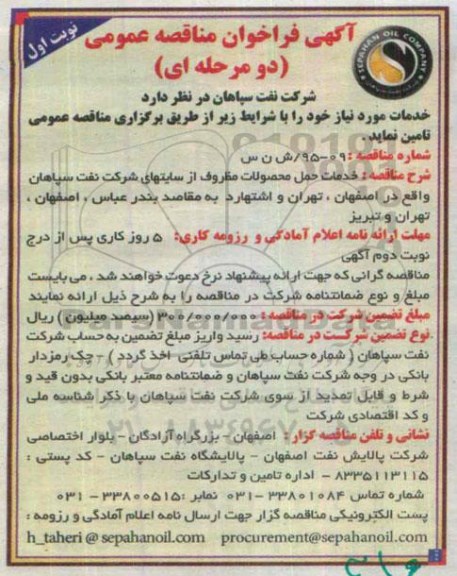 نوبت اول
آگهی فراخوان مناقصه عمومی
(دو مرحله ای)
SEPAHAN OIL COMPANY
شرکت نفت سپاهان در نظر دارد
خدمات مورد نیاز خود را با شرایط زیر از طریق برگزاری مناقصه عمومی
تامین نماید.
شماره مناقصه : ۰۹-۹۵/ش ن س
شرح مناقصه : خدمات حمل محصولات مظروف از سایتهای شرکت نفت سپاهان
واقع در اصفهان ، تهران و اشتهارد به مقاصد بندر عباس ، اصفهان ،
تهران و تبریز
مهلت ارائه نامه اعلام آمادگی و رزومه کاری: ۵ روز کاری پس از درج
نوبت دوم آگهی
مناقصه گرانی که جهت ارائه پیشنهاد نرخ دعوت خواهند شد ، می بایست
مبلغ و نوع ضمانتنامه شرکت در مناقصه را به شرح ذیل ارائه نمایند
مبلغ تضمین شرکت در مناقصه : ۳۰۰/۰۰۰/۰۰۰ (سیصد میلیون) ریال
نوع تضمین شرکت در مناقصه: رسید واریز مبلغ تضمین به حساب شرکت
نفت سپاهان ( شماره حساب طی تماس تلفنی اخذ گردد ) - چک رمزدار
بانکی در وجه شرکت نفت سپاهان و ضمانتنامه معتبر بانکی بدون قید و
شرط و قابل تمدید از سوی شرکت نفت سپاهان با ذکر شناسه ملی
و کد اقتصادی شرکت
نشانی و تلفن مناقصه گزار : اصفهان - بزرگراه آزادگان - بلوار اختصاصی
شرکت پالایش نفت اصفهان - پالایشگاه نفت سپاهان - کد پستی :
۸۳۳۵۱۱۳۱۱۵ - اداره تامین و تدارکات
شماره تماس ۳۳۸۰۱۰۸۴ -۰۳۱ نمابر :۳۳۸۰۰۵۱۵ - ۰۳۱
پست الکترونیکی مناقصه گزار جهت ارسال نامه اعلام آمادگی و رزومه :
h_taheri@sepahanoil.com procurement@sepahanoil.com